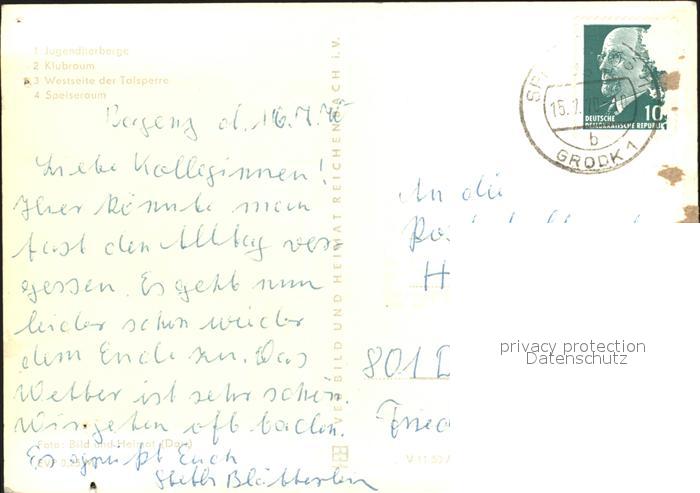 1 Jugendherberge
2 Klubraum
3 Westseite der Talsperre
4 Speiseraum
d. 16.7.70
Liebe Kolleginnen!
Hier könnte man
fast den Alltag ver-
gessen. Es geht nun
leider schon wieder
dem Ende zu. Das
Wetter ist sehr schön.
Wir gehen oft baden.
Es grüßt Euch
Foto: Bild und Heimat
VERLAG BILD UND HEIMAT REICHENBACH i. V.
DEUTSCHE
DEMOKRATISCHE REPUBLIK
10
15.7.70
b
GRODK 1
An die
H
801 D
Fried
privacy protection
Datenschutz